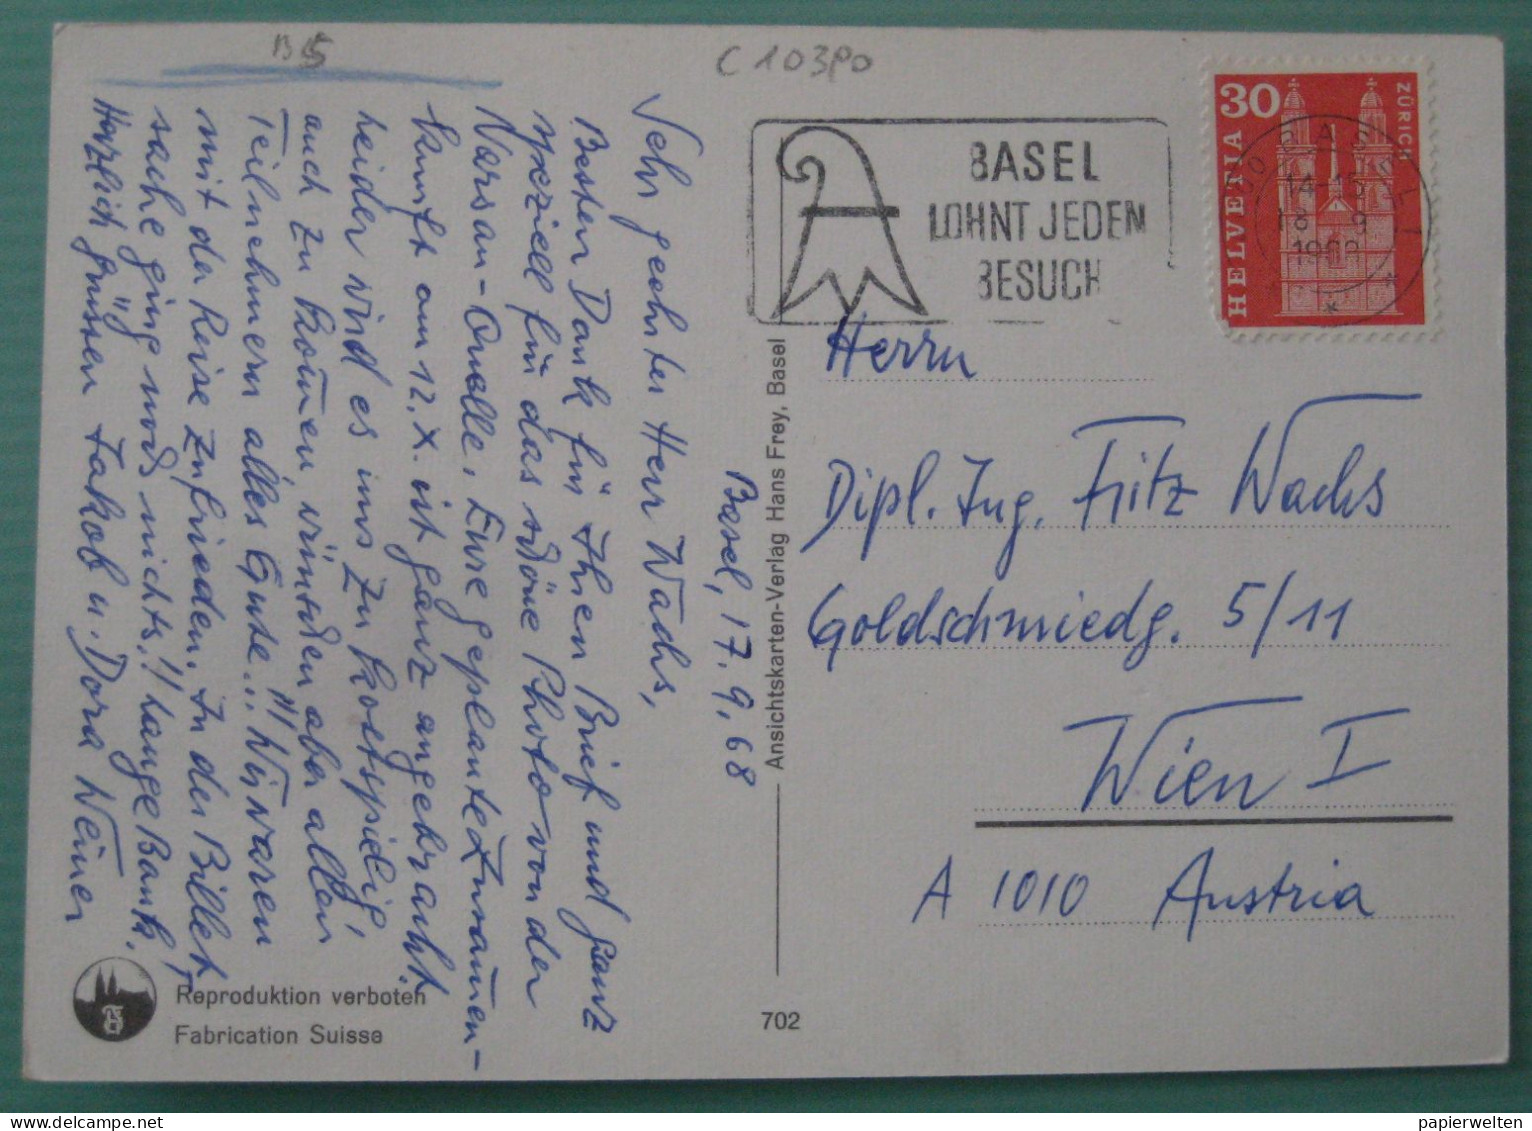 BS
C103Po
BASEL
LOHNT JEDEN
BESUCH
30
HELVETIA
ZÜRICH
BASEL 1
14-15
18. 9
1968
Basel, 17.9.68
Sehr geehrter Herr Wachs,
Besten Dank für Ihren Brief und ganz
speziell für das schöne Photo von der
Narsan-Quelle. Eure geplante Zusammen-
kunft am 12.X. ist ganz angebracht.
Leider wird es uns zu kostspielig,
auch zu kom̄en, wünschen aber allen
Teilnehmern alles Gute..!!! Wir waren
mit der Reise zufrieden. In der Billet-
sache ging noch nichts.!! Lange Bank.
Herzlich grüssen Jakob u. Dora Weiner
Ansichtskarten-Verlag Hans Frey, Basel
Herrn
Dipl. Ing. Fritz Wachs
Goldschmiedg. 5/11
Wien I
A 1010 Austria
Reproduktion verboten
Fabrication Suisse
702
papierwelten